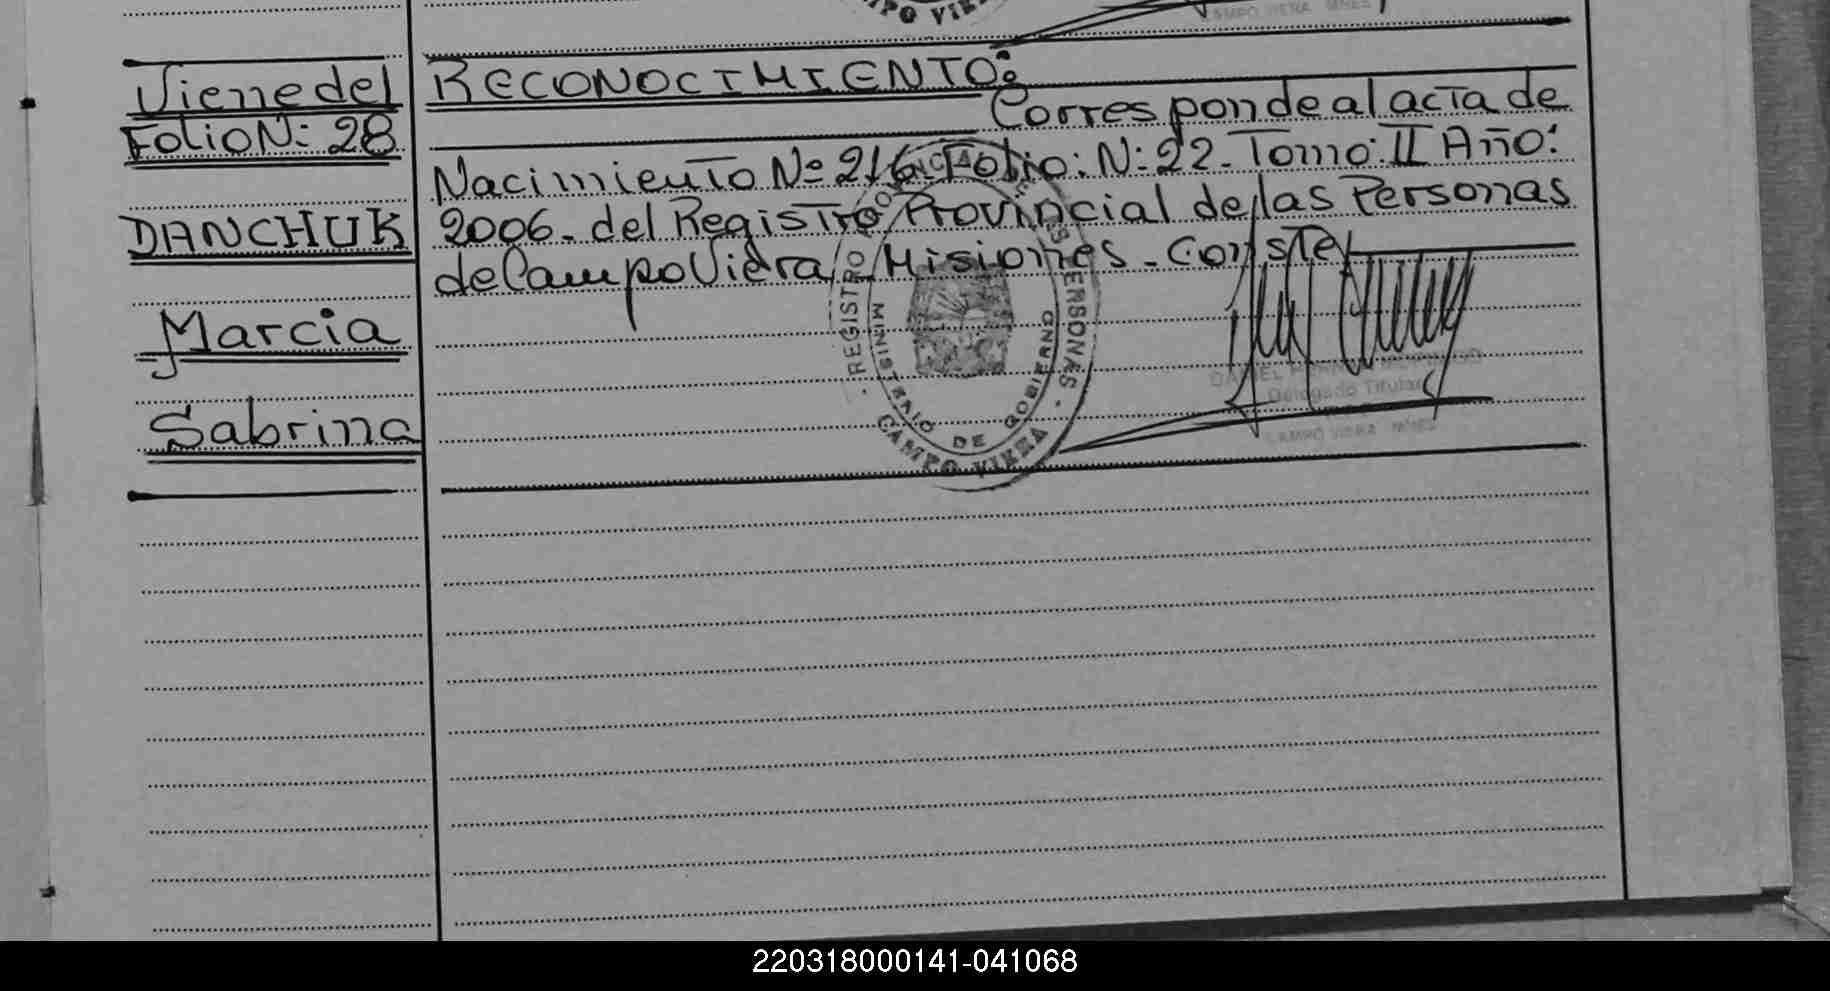 MPO VIER
CAMPO VIERA MNES
Viene del
Folio N: 28
DANCHUK
Marcia
Sabrina
RECONOCIMIENTO:
Corresponde al acta de
Nacimiento Nº 216. Folio: N: 22. Tomo: II Año:
2006. del Registro Provincial de las Personas
de Campo Viera, Misiones. Conste,
REGISTRO PERSONAS
MINISTERIO DE GOBIERNO
CAMPO VIERA
Delegado Titular
CAMPO VIERA MNES
220318000141-041068